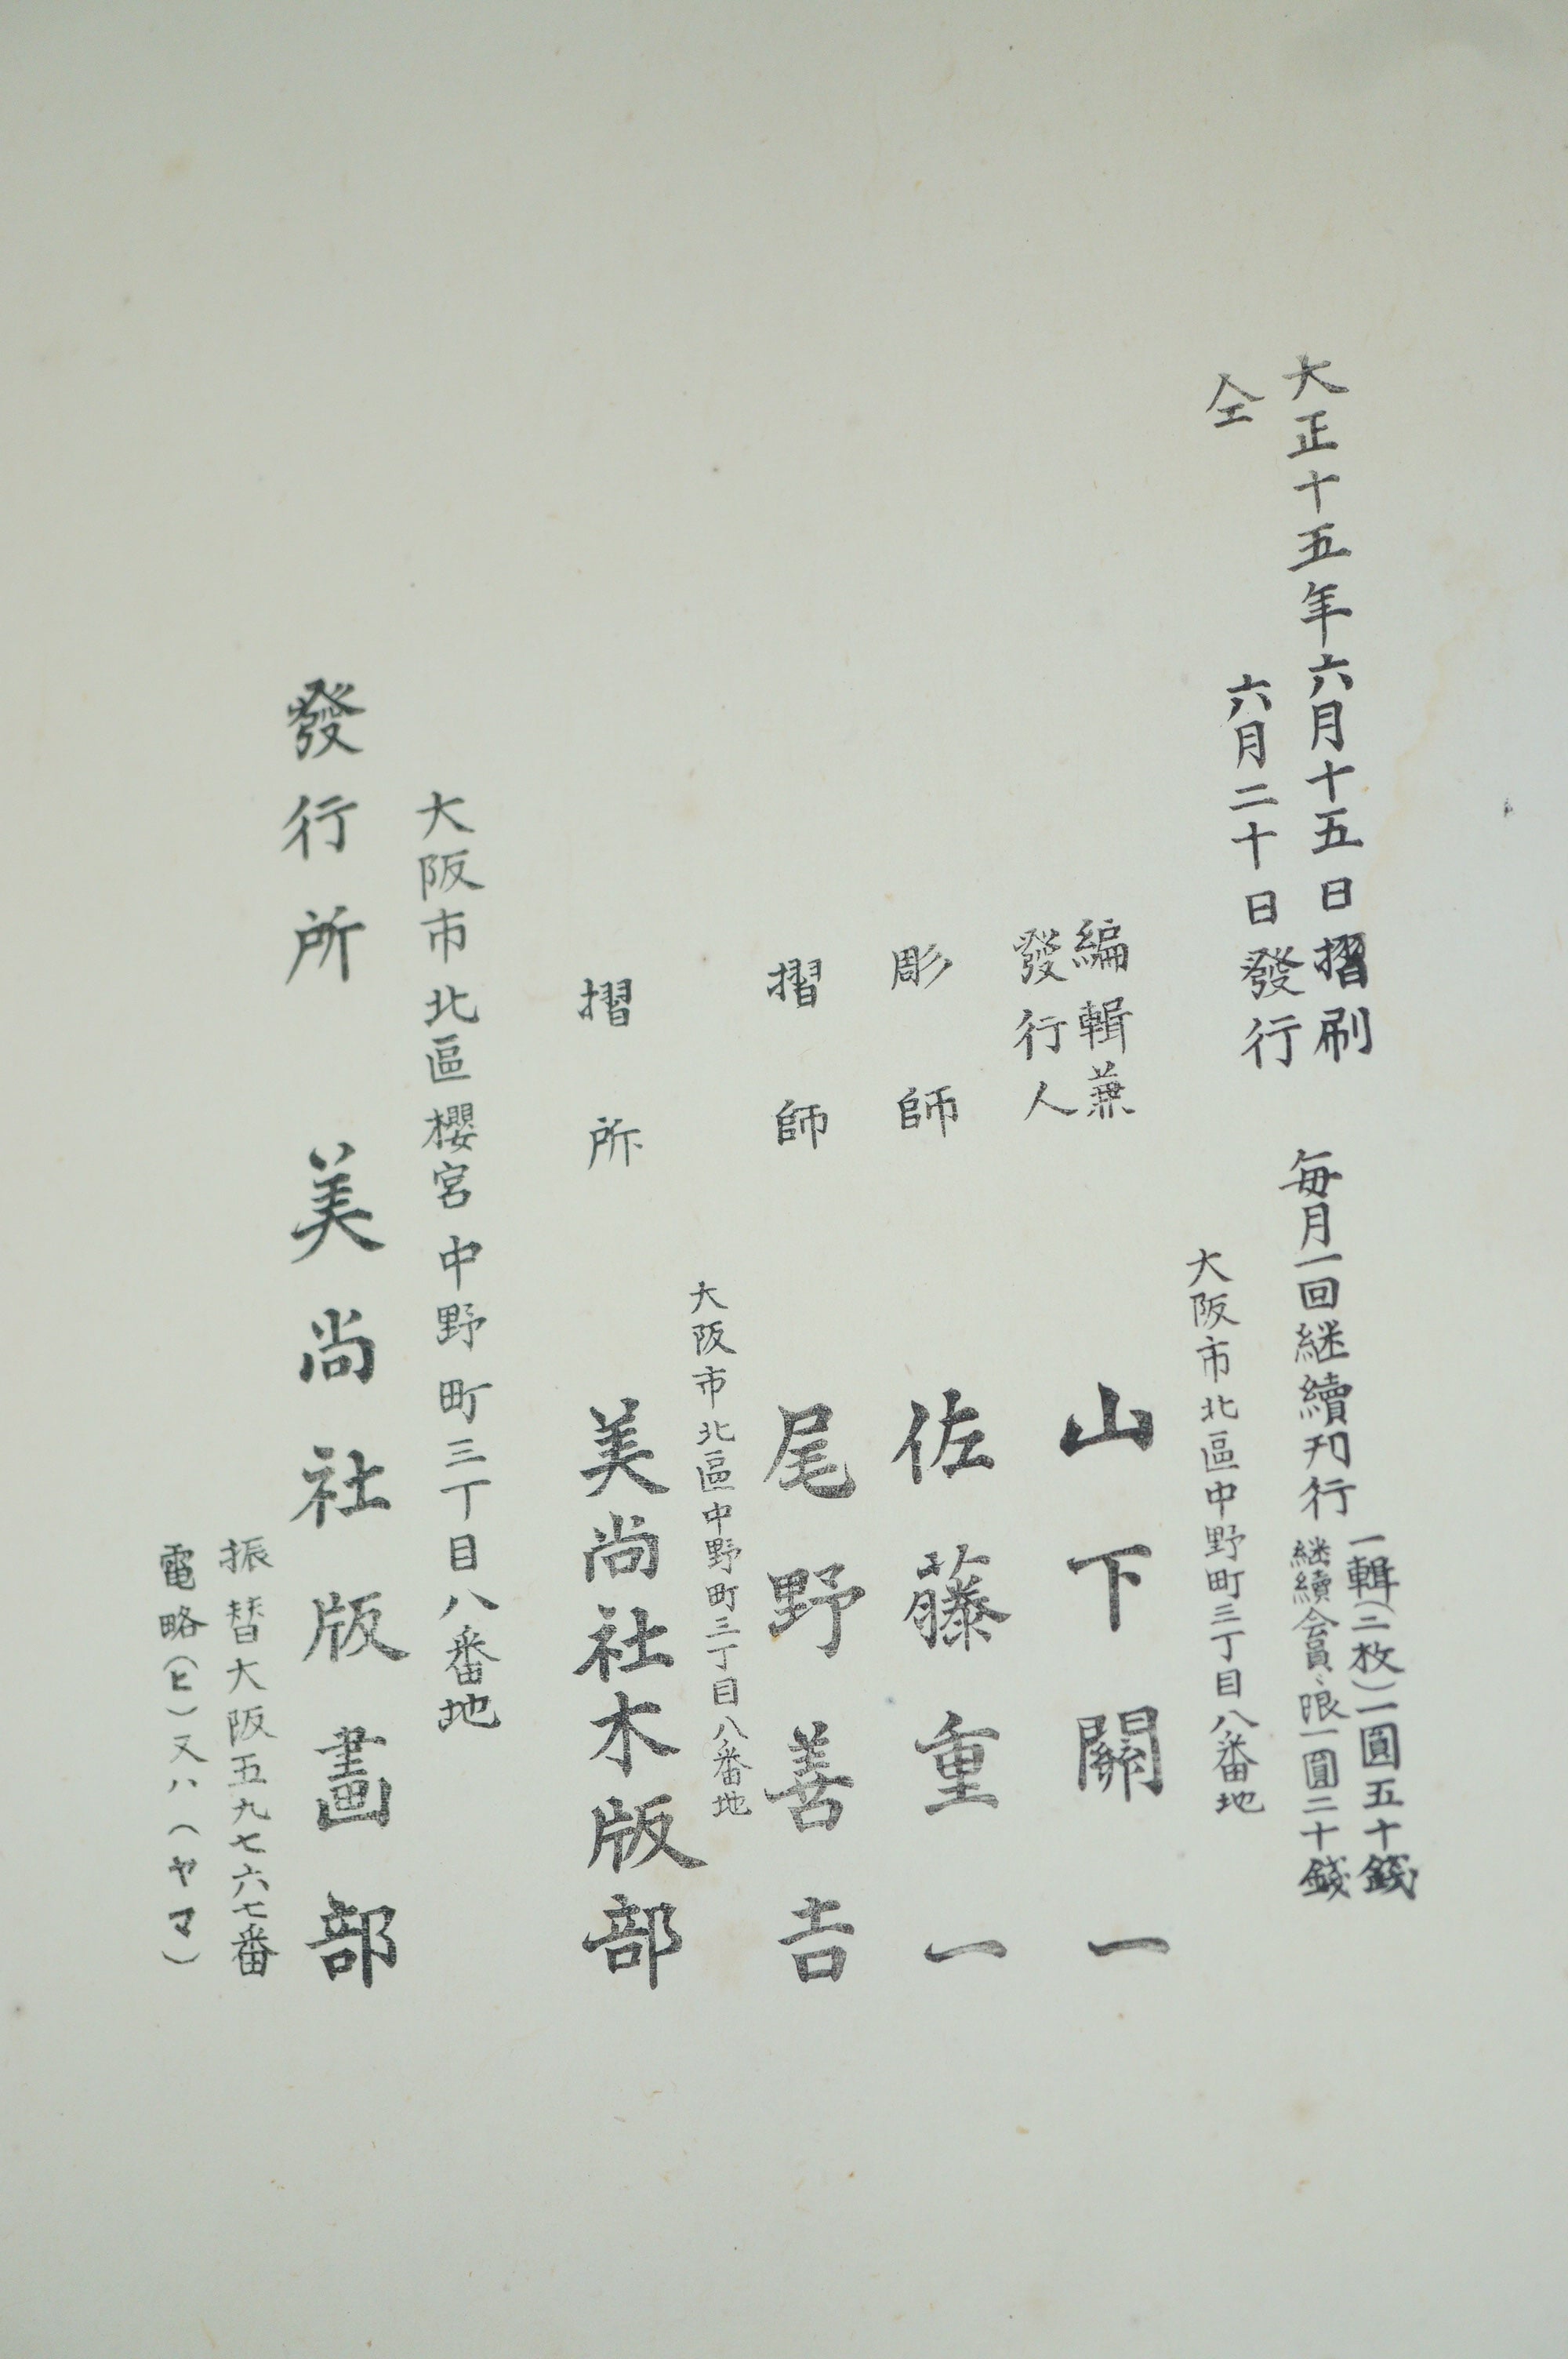 大正十五年六月十五日摺刷
仝 六月二十日發行
毎月一回継續刊行
一輯(二枚)一圓五十錢
継續会員ニ限一圓二十錢
大阪市北區中野町三丁目八番地
編輯兼
發行人
山下關一
彫師 佐藤重一
摺師 尾野善吉
大阪市北區中野町三丁目八番地
摺所 美尚社木版部
大阪市北區櫻宮中野町三丁目八番地
發行所 美尚社版畫部
振替大阪五九七六七番
電略(ヒ)又ハ(ヤマ)